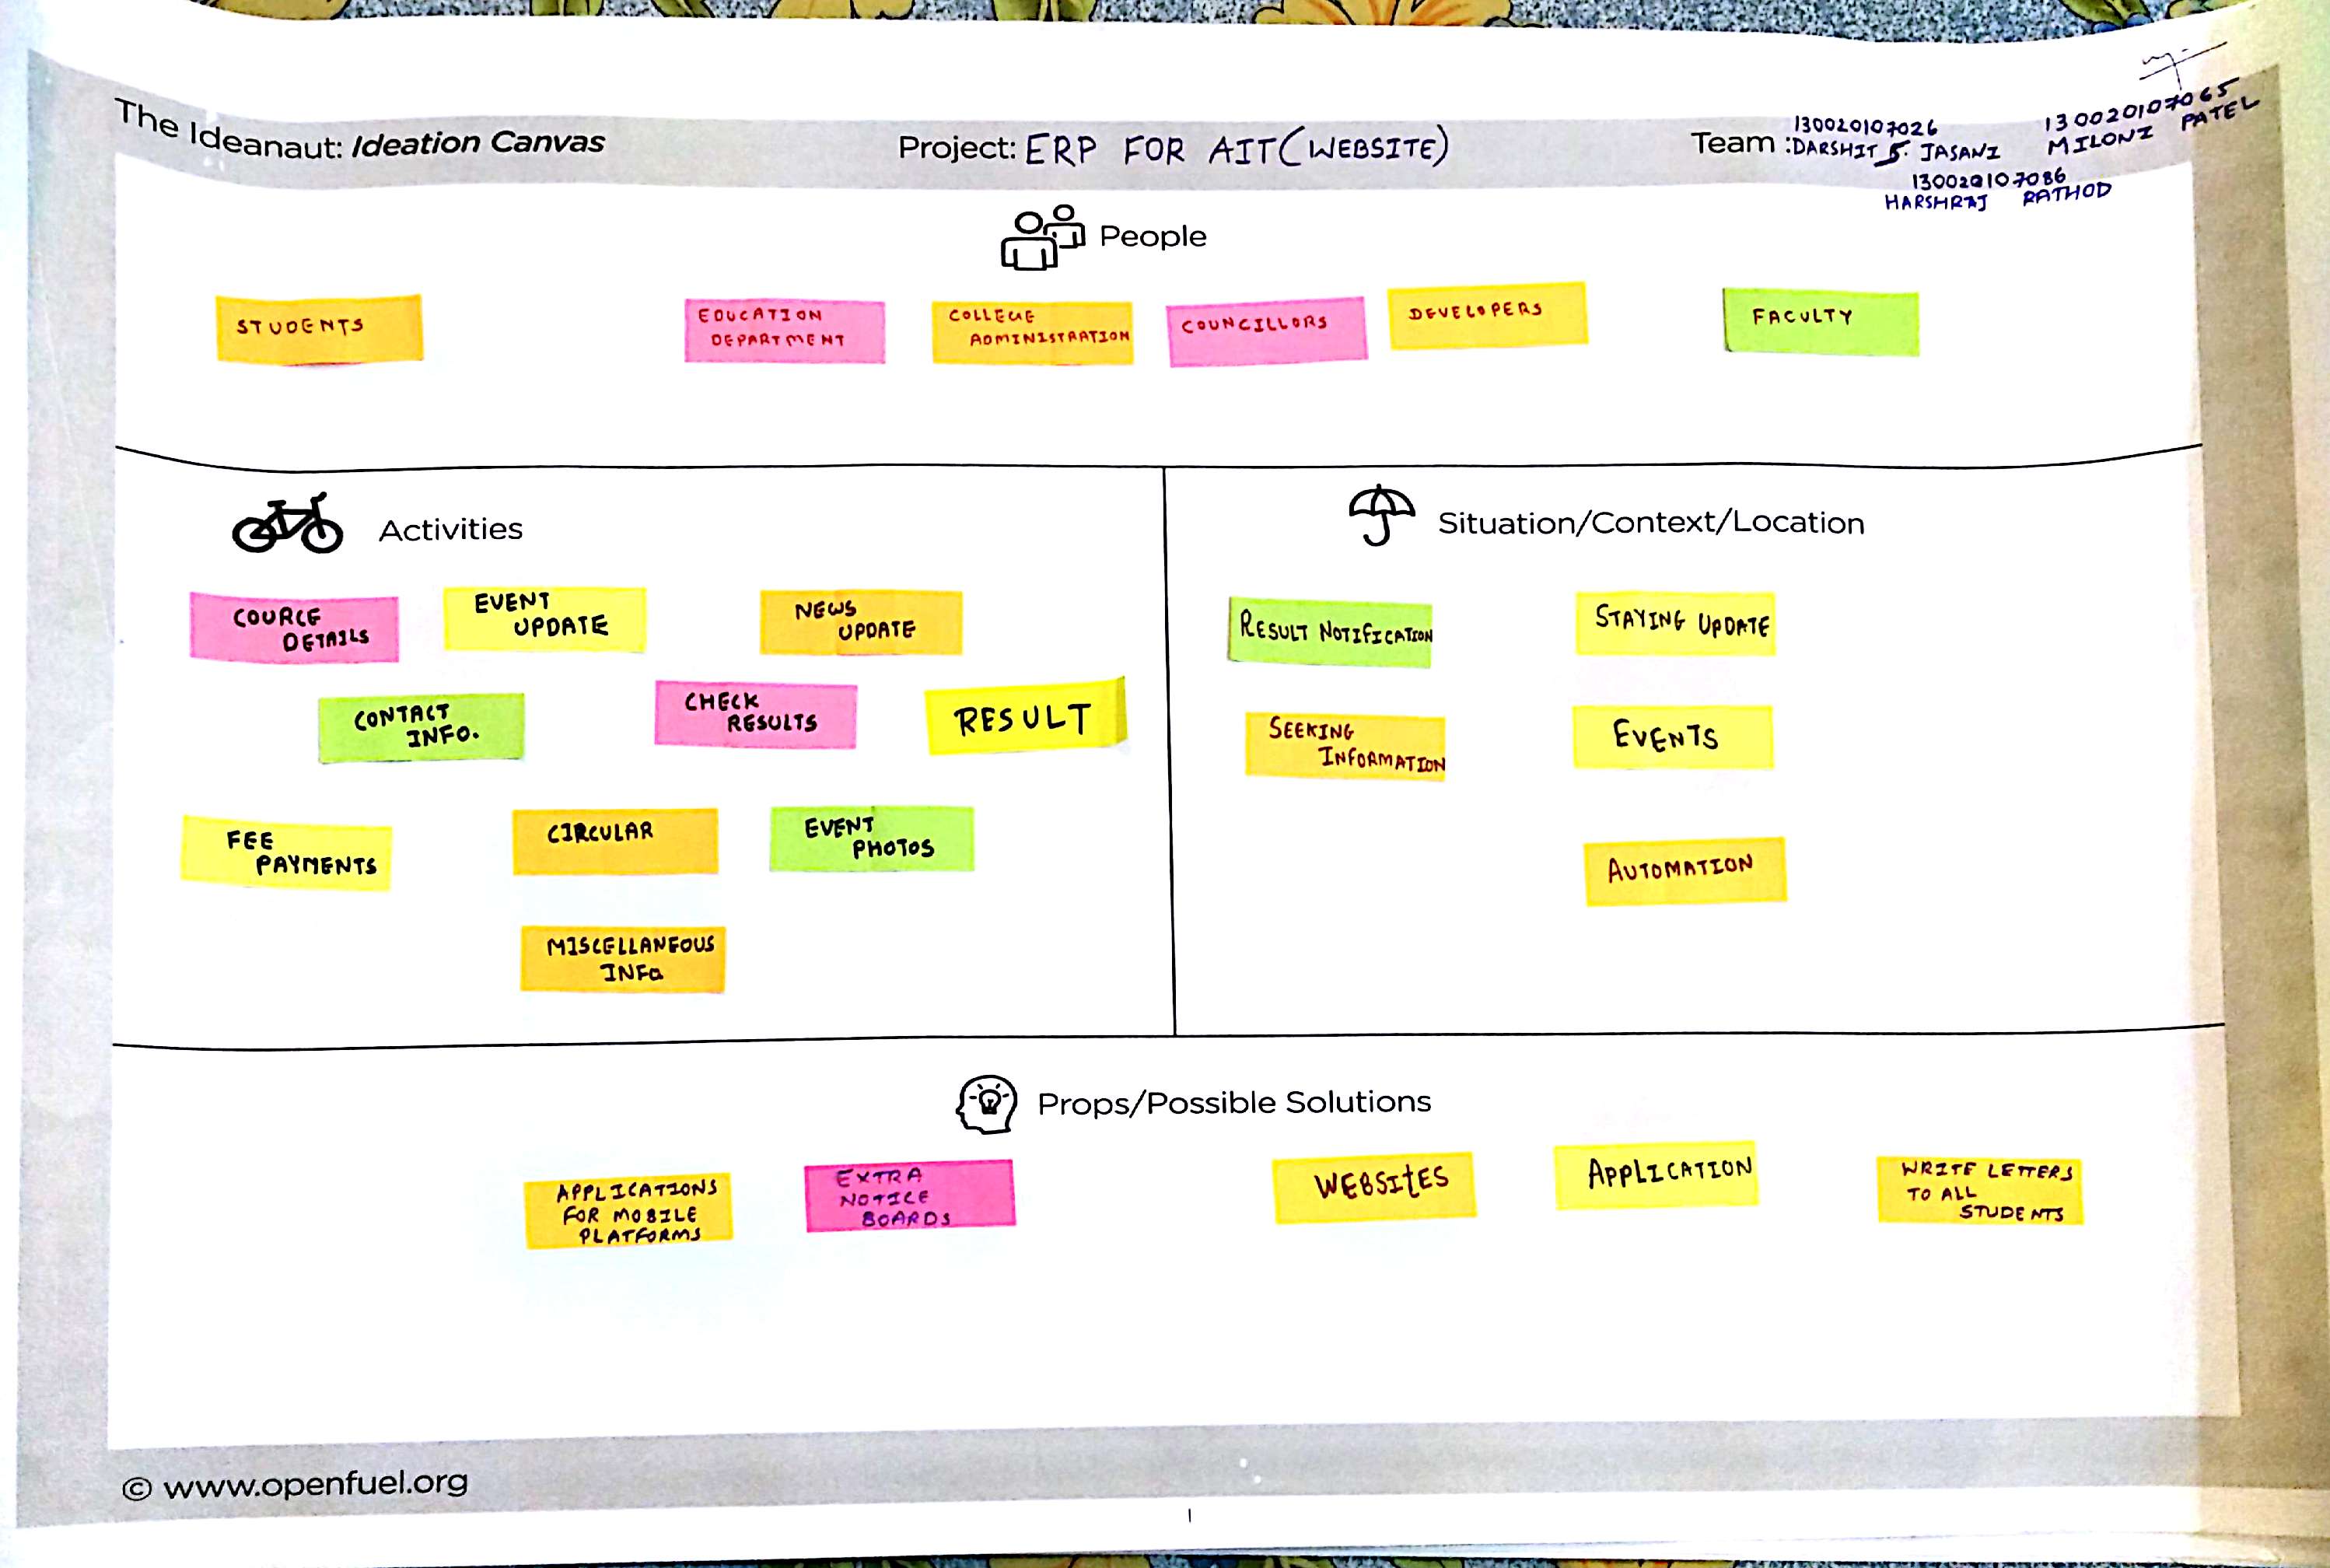 The Ideanaut: Ideation Canvas
Project: ERP FOR AIT (WEBSITE)
Team :
130020107026
DARSHIT S. JASANI
130020107065
MILONI PATEL
130020107086
HARSHRAJ RATHOD
People
STUDENTS
EDUCATION
DEPARTMENT
COLLEGE
ADMINISTRATION
COUNCILLORS
DEVELOPERS
FACULTY
Activities
COURCE
DETAILS
EVENT
UPDATE
NEWS
UPDATE
CONTACT
INFO.
CHECK
RESULTS
RESULT
FEE
PAYMENTS
CIRCULAR
EVENT
PHOTOS
MISCELLANEOUS
INFO
Situation/Context/Location
RESULT NOTIFICATION
STAYING UPDATE
SEEKING
INFORMATION
EVENTS
AUTOMATION
Props/Possible Solutions
APPLICATIONS
FOR MOBILE
PLATFORMS
EXTRA
NOTICE
BOARDS
WEBSITES
APPLICATION
WRITE LETTERS
TO ALL
STUDENTS
© www.openfuel.org
1